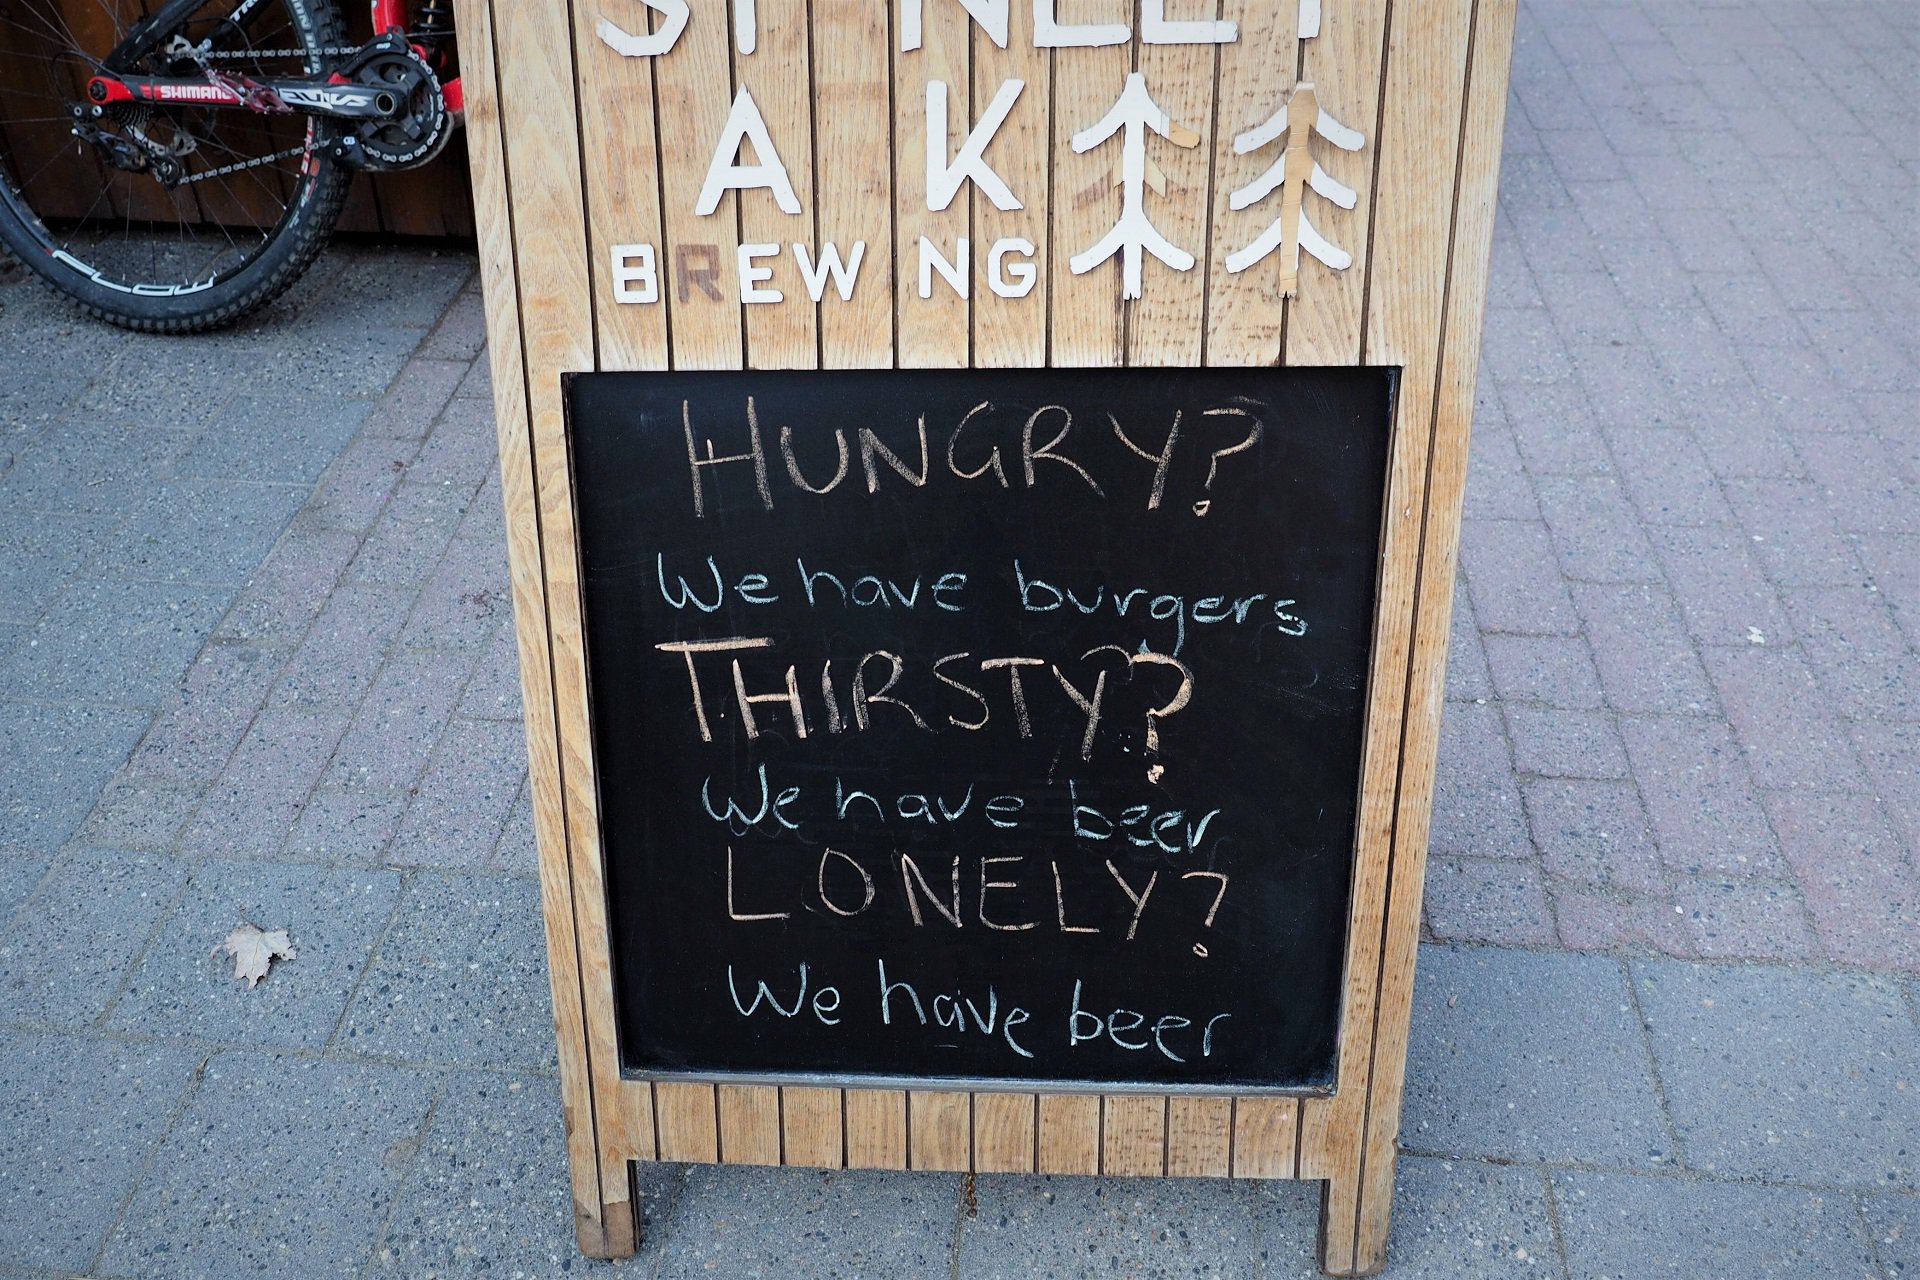 A K
BREW NG
HUNGRY?
We have burgers
THIRSTY?
We have beer
LONELY?
We have beer
SHIMANO